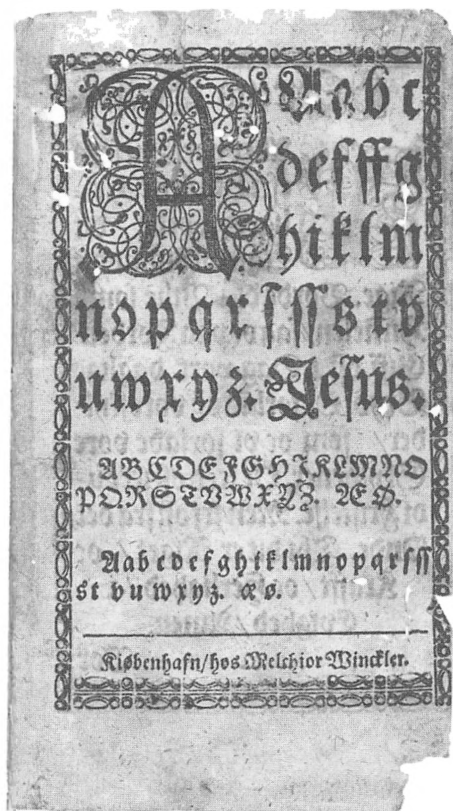 A Aabc
defffg
hiklm
nopqrſſsstv
uwxyz. Jeſus.
ABCDEFGHIKLMNO
PQRSTVWXYZ. ÆØ.
Aabcdefghiklmnopqrſſſ
st vuwxyz. æø.
Kiøbenhafn/hos Melchior Winckler.